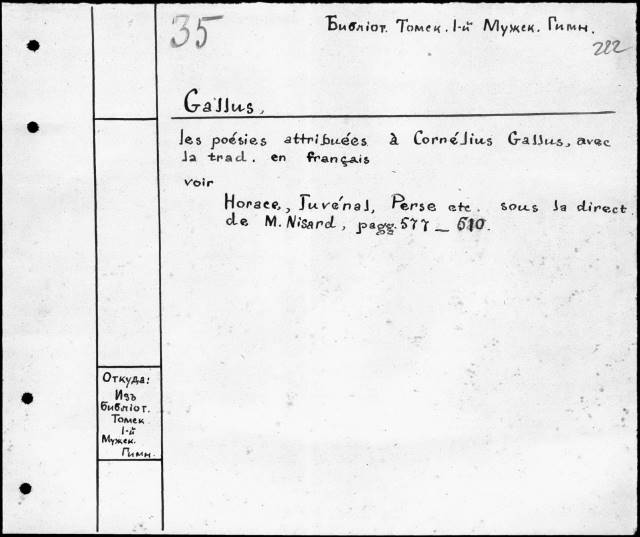 35
Библіот. Томск. 1-й Мужск. Гимн.
222
Gallus,
les poésies attribuées à Cornélius Gallus, avec
la trad. en français
voir
Horace, Juvénal, Perse etc. sous la direct.
de M. Nisard, pagg. 577 —
Откуда:
Изъ
Библіот.
Томск.
1-й
Мужск.
Гимн.